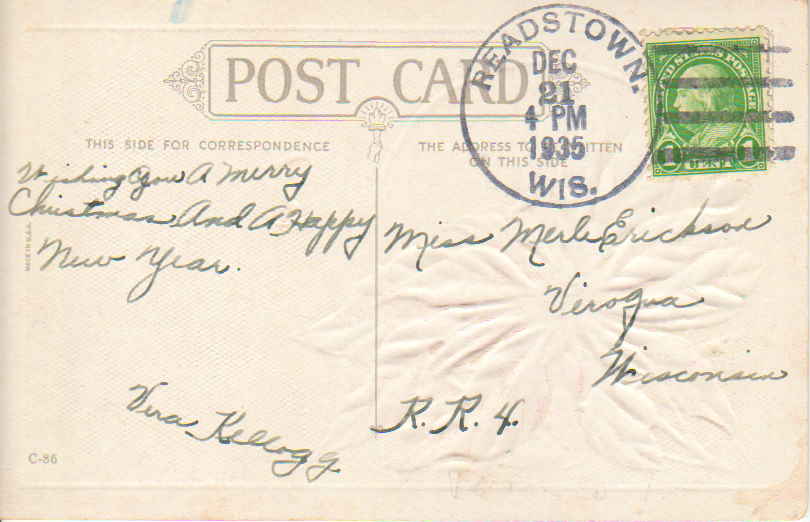 POST CARD
THIS SIDE FOR CORRESPONDENCE
THE ADDRESS TO BE WRITTEN
ON THIS SIDE
READSTOWN.
DEC
21
4 PM
1935
WIS.
UNITED STATES POSTAGE
1 CENT 1
Wishing You A Merry
Christmas And A Happy
New Year.
Vera Kellogg
Miss Merle Erickson
Viroqua
Wisconsin
R. R. 4.
MADE IN U.S.A.
C-86